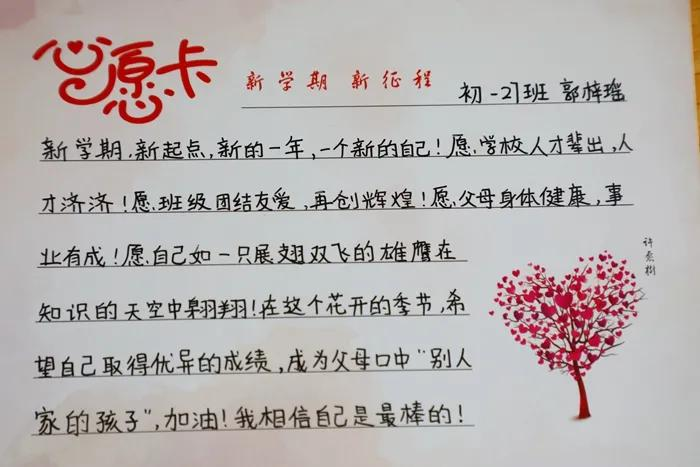 心愿卡
新学期 新征程
初一27班 郭梓瑶
新学期,新起点,新的一年,一个新的自己!愿学校人才辈出,人
才济济!愿班级团结友爱,再创辉煌!愿父母身体健康,事
业有成!愿自己如一只展翅双飞的雄鹰在
知识的天空中翱翔!在这个花开的季节,希
望自己取得优异的成绩,成为父母口中“别人
家的孩子”,加油!我相信自己是最棒的!
许愿树